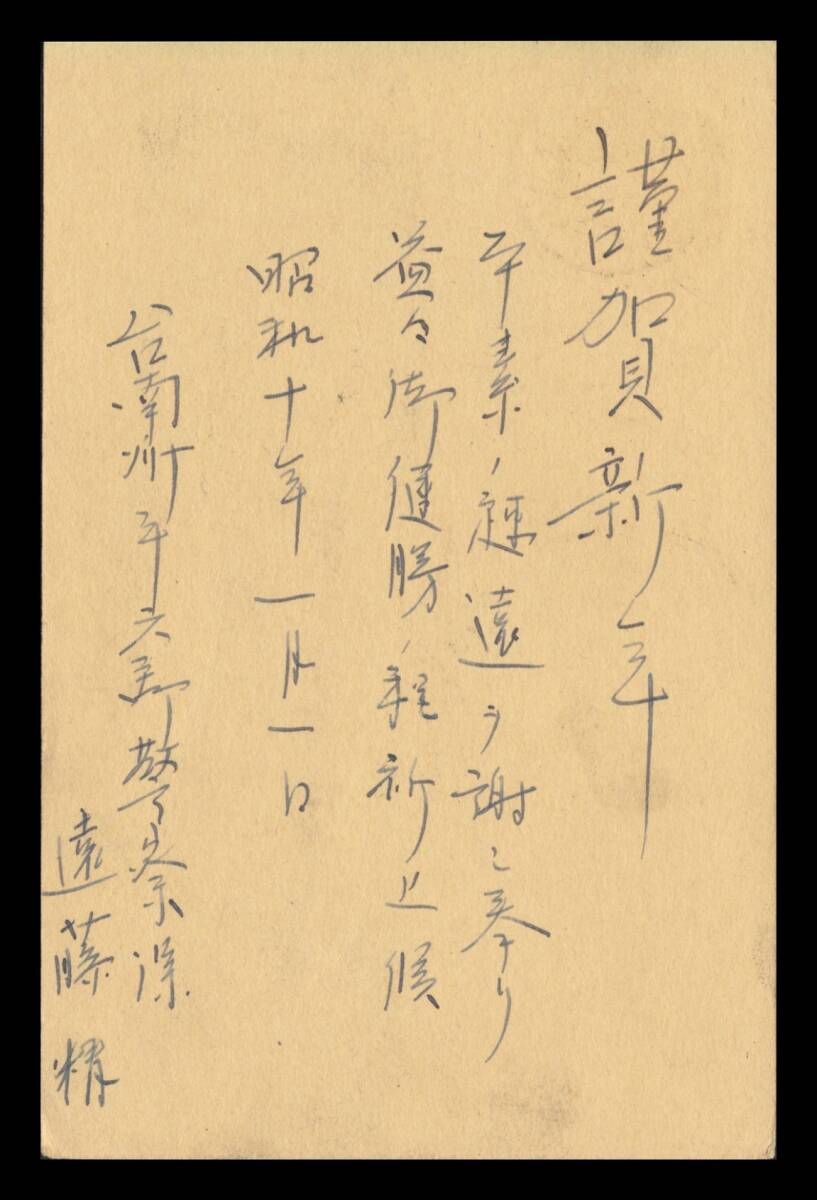 謹賀新年
平素ノ疎遠ヲ謝シ奉リ
益々御健勝ノ程祈上候
昭和十年一月一日
台南州斗六郡警察課
遠藤精